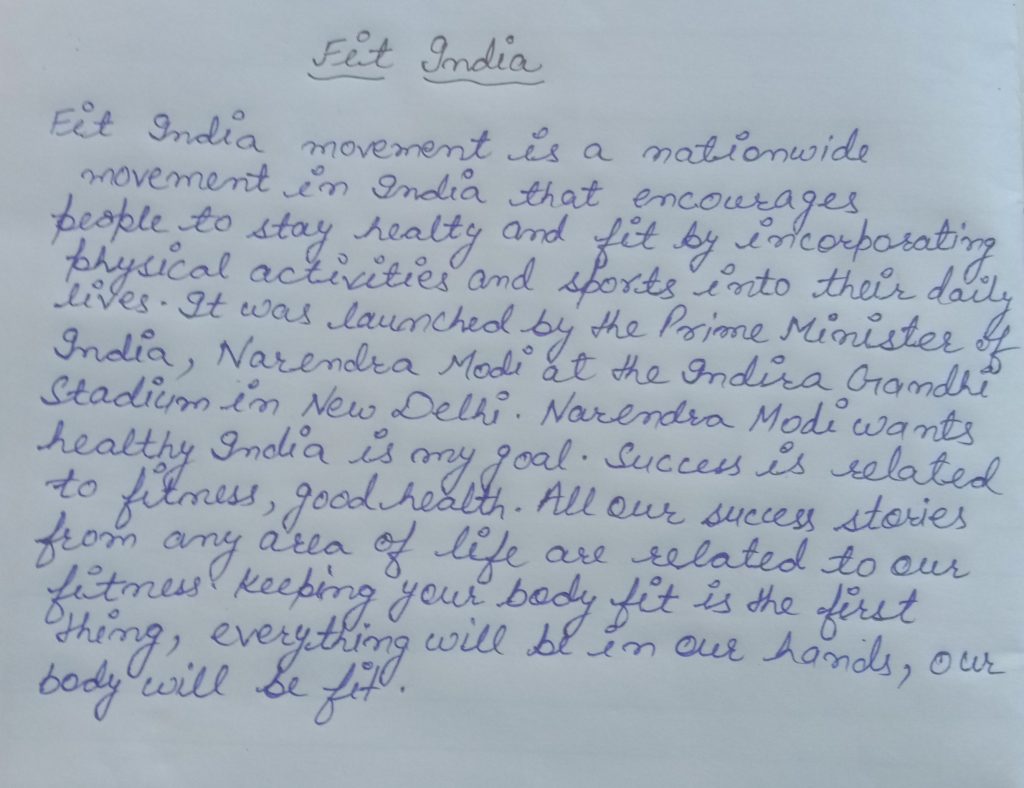 Fit India
Fit India movement is a nationwide
movement in India that encourages
people to stay healty and fit by incorporating
physical activities and sports into their daily
lives. It was launched by the Prime Minister of
India, Narendra Modi at the Indira Gandhi
Stadium in New Delhi. Narendra Modi wants
healthy India is my goal. Success is related
to fitness, good health. All our success stories
from any area of life are related to our
fitness. Keeping your body fit is the first
thing, everything will be in our hands, our
body will be fit.